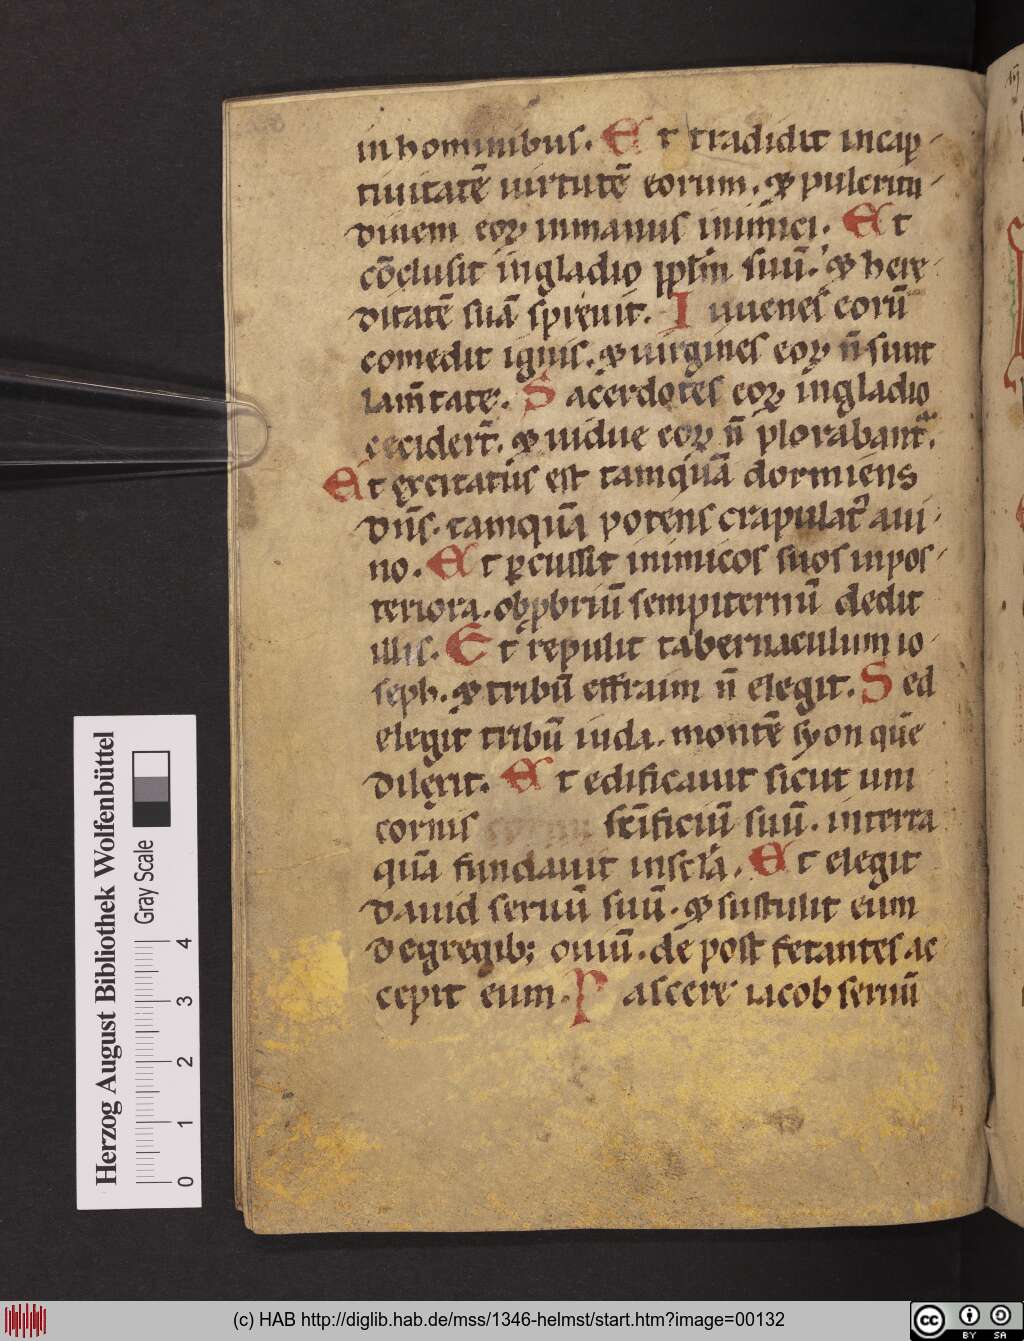 in hominibus. Et tradidit incap-
tiuitatē uirtutē eorum. ⁊ pulcritu-
dinem eoꝝ inmanus inimici. Et
cōclusit ingladio ppłm suū. ⁊ here-
ditatē suā spreuit. Iuuenes eorū
comedit ignis. ⁊ uirgines eoꝝ n̄ sunt
lam̄tatę. Sacerdotes eoꝝ ingladio
ceciderт̄. ⁊ uidue eoꝝ n̄ plorabant̄.
Et excitatus est tamquā dormiens
dn̄s. tamquā potens crapulat᾽ aui-
no. Et ꝑcussit inimicos suos inpos-
teriora. obꝓbriū sempiternū dedit
illis. Et repulit tabernaculum io-
seph. ⁊ tribū effraim n̄ elegit. Sed
elegit tribū iuda. montē syon quē
dilexit. Et edificauit sicut uni
cornis sc̄ificiū suū. interra
quā fundauit inscl̄a. Et elegit
Dauid seruū suū. ⁊ sustulit eum
degregib; ouiū. de post fetantes ac
cepit eum. Pascere iacob seruū
Herzog August Bibliothek Wolfenbüttel
Gray Scale
0 1 2 3 4
(c) HAB http://diglib.hab.de/mss/1346-helmst/start.htm?image=00132
cc BY SA